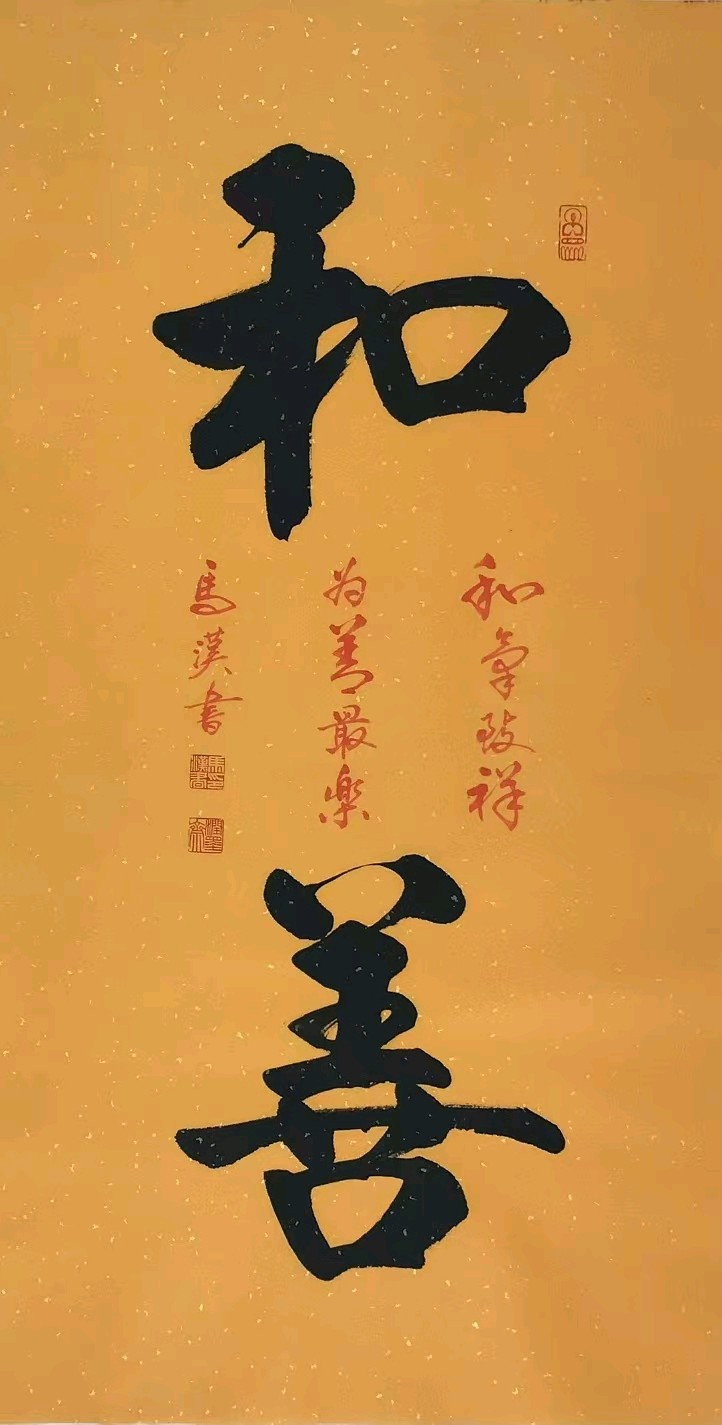 和
善
和氣致祥
为善最樂
馬漢書